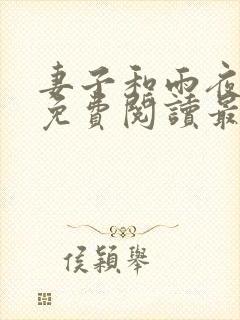 妻子和雨夜
免費閱讀最
侯穎舉